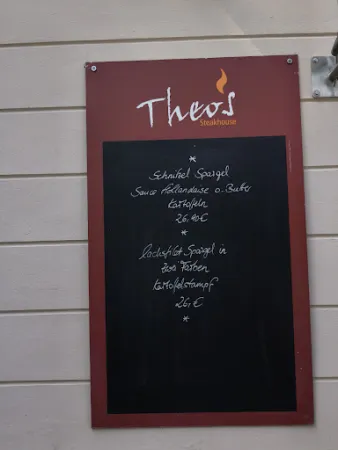 Theo's
Steakhouse
*
Schnitzel Spargel
Sauce Hollandaise o. Butter
Kartoffeln
26,90€
*
Lachsfilet Spargel in
zwei Farben
Kartoffelstampf
26,€
*